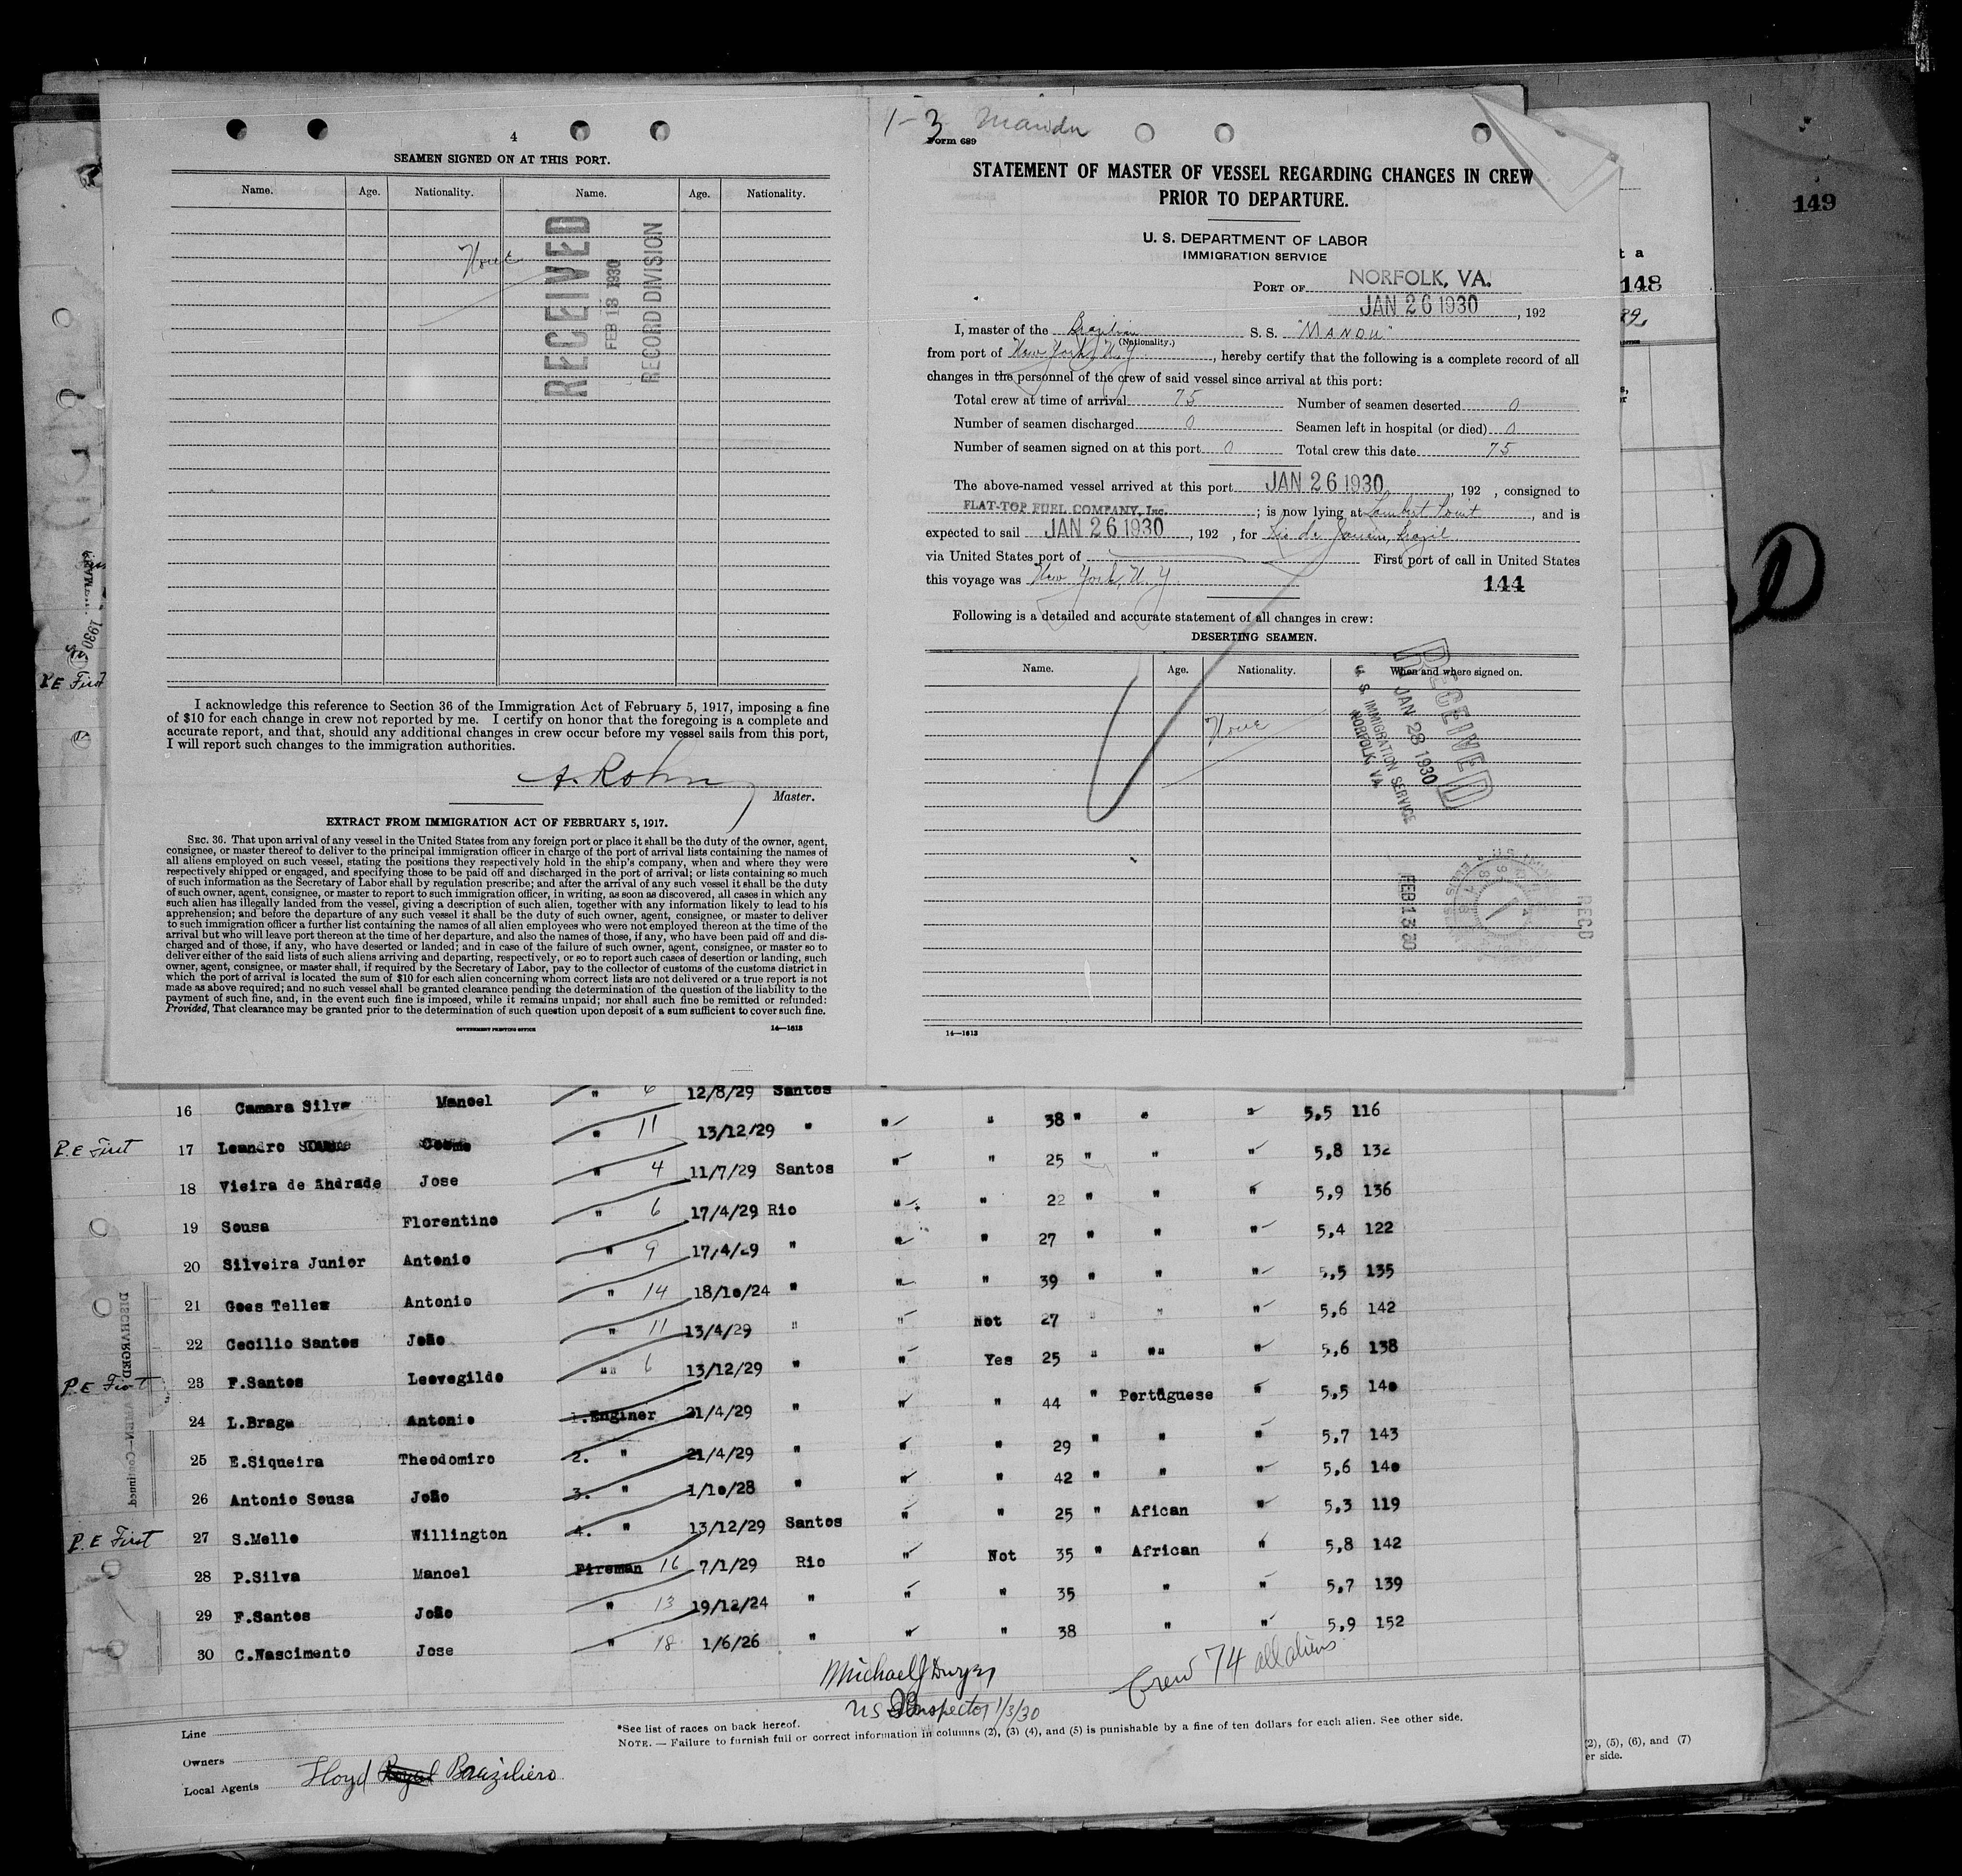 4
SEAMEN SIGNED ON AT THIS PORT.
Name. Age. Nationality. Name. Age. Nationality.
None
RECEIVED
FEB 18 1930
RECORD DIVISION
I acknowledge this reference to Section 36 of the Immigration Act of February 5, 1917, imposing a fine
of $10 for each change in crew not reported by me. I certify on honor that the foregoing is a complete and
accurate report, and that, should any additional changes in crew occur before my vessel sails from this port,
I will report such changes to the immigration authorities.
A. Rohn
Master.
EXTRACT FROM IMMIGRATION ACT OF FEBRUARY 5, 1917.
SEC. 36. That upon arrival of any vessel in the United States from any foreign port or place it shall be the duty of the owner, agent,
consignee, or master thereof to deliver to the principal immigration officer in charge of the port of arrival lists containing the names of
all aliens employed on such vessel, stating the positions they respectively hold in the ship's company, when and where they were
respectively shipped or engaged, and specifying those to be paid off and discharged in the port of arrival; or lists containing so much
of such information as the Secretary of Labor shall by regulation prescribe; and after the arrival of any such vessel it shall be the duty
of such owner, agent, consignee, or master to report to such immigration officer, in writing, as soon as discovered, all cases in which any
such alien has illegally landed from the vessel, giving a description of such alien, together with any information likely to lead to his
apprehension; and before the departure of any such vessel it shall be the duty of such owner, agent, consignee, or master to deliver
to such immigration officer a further list containing the names of all alien employees who were not employed thereon at the time of the
arrival but who will leave port thereon at the time of her departure, and also the names of those, if any, who have been paid off and dis-
charged and of those, if any, who have deserted or landed; and in case of the failure of such owner, agent, consignee, or master so to
deliver either of the said lists of such aliens arriving and departing, respectively, or so to report such cases of desertion or landing, such
owner, agent, consignee, or master shall, if required by the Secretary of Labor, pay to the collector of customs of the customs district in
which the port of arrival is located the sum of $10 for each alien concerning whom correct lists are not delivered or a true report is not
made as above required; and no such vessel shall be granted clearance pending the determination of the question of the liability to the
payment of such fine, and, in the event such fine is imposed, while it remains unpaid; nor shall such fine be remitted or refunded:
Provided, That clearance may be granted prior to the determination of such question upon deposit of a sum sufficient to cover such fine.
GOVERNMENT PRINTING OFFICE 14—1613
1-3 Mandu
Form 689
STATEMENT OF MASTER OF VESSEL REGARDING CHANGES IN CREW
PRIOR TO DEPARTURE.
U. S. DEPARTMENT OF LABOR
IMMIGRATION SERVICE
PORT OF NORFOLK, VA.
JAN 26 1930, 192
I, master of the Brazilian S. S. "MANDU"
(Nationality.)
from port of New York, N.Y., hereby certify that the following is a complete record of all
changes in the personnel of the crew of said vessel since arrival at this port:
Total crew at time of arrival 75 Number of seamen deserted 0
Number of seamen discharged 0 Seamen left in hospital (or died) 0
Number of seamen signed on at this port 0 Total crew this date 75
The above-named vessel arrived at this port JAN 26 1930, 192 , consigned to
FLAT-TOP FUEL COMPANY, Inc. ; is now lying at Lambert Point, and is
expected to sail JAN 26 1930, 192 , for Rio de Janeiro, Brazil
via United States port of First port of call in United States
this voyage was New York, N.Y. 144
Following is a detailed and accurate statement of all changes in crew:
DESERTING SEAMEN.
Name. Age. Nationality. When and where signed on.
None
RECEIVED
JAN 28 1930
U. S. IMMIGRATION SERVICE
NORFOLK, VA.
FEB 13 30
RECD
14—1613
149
t a
148
P.E First
16 Camara Silva Manoel " 6 12/8/29 Santos
17 Leandro Cosme " 11 13/12/29 " " " 38 " " " 5,5 116
P.E First
18 Vieira de Andrade Jose " 4 11/7/29 Santos " " 25 " " " 5,8 132
19 Sousa Florentino " 6 17/4/29 Rio " " 22 " " " 5,9 136
20 Silveira Junior Antonio " 9 17/4/29 " " " 27 " " " 5,4 122
21 Goes Telles Antonio " 14 18/10/24 " " " 39 " " " 5,5 135
22 Cecilio Santos João " 11 13/4/29 " " Not 27 " " " 5,6 142
23 F.Santos Leovegildo "" 6 13/12/29 " " Yes 25 " "" " 5,6 138
P.E First
24 L.Braga Antonio 1.Enginer 21/4/29 " " " 44 " Portuguese " 5,5 140
25 E.Siqueira Theodomiro 2. " 21/4/29 " " " 29 " " " 5,7 143
26 Antonio Sousa João 3. " 1/10/28 " " " 42 " " " 5,6 140
27 S.Mello Willington 4. " 13/12/29 Santos " " 25 " Afican " 5,3 119
P.E First
28 P.Silva Manoel Fireman 16 7/1/29 Rio " Not 35 " African " 5,8 142
29 F.Santos João " 13 19/12/24 " " " 35 " " 5,7 139
30 C.Nascimento Jose " 18 1/6/26 " " " 38 " " 5,9 152
DISCHARGED SEAMEN—Continued
Michael J Dwyer
US Inspector 1/3/30
Crew 74 all aliens
Line
Owners
Local Agents Lloyd Royal Braziliero
*See list of races on back hereof.
NOTE. — Failure to furnish full or correct information in columns (2), (3) (4), and (5) is punishable by a fine of ten dollars for each alien. See other side.
(2), (5), (6), and (7)
er side.